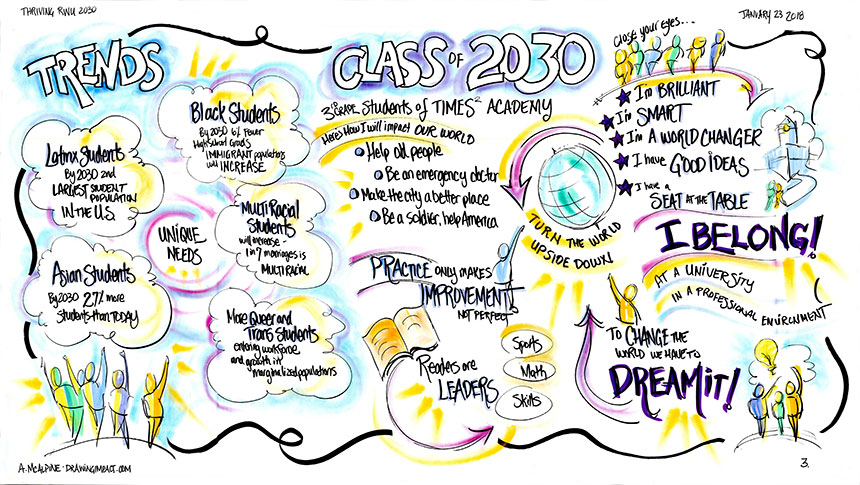 THRIVING RWU 2030
JANUARY 23 2018
TRENDS
Latinx Students
By 2030 2nd
LARGEST STUDENT
POPULATION
IN THE U.S.
Black Students
By 2030 6% Fewer
High School Grads
IMMIGRANT populations
will INCREASE
UNIQUE
NEEDS
MultiRacial
Students
will increase -
1 in 7 marriages is
MULTIRACIAL
Asian Students
By 2030 27% more
Students than TODAY
More Queer and
Trans Students
entering workforce
and growth in
marginalized populations
CLASS OF 2030
3rd GRADE Students of TIMES² ACADEMY
Here's How I will impact OUR WORLD
Help old people
Be an emergency doctor
Make the city a better place
Be a soldier, help America
TURN THE WORLD
UPSIDE DOWN
PRACTICE only makes
IMPROVEMENT
NOT PERFECT
Readers are
LEADERS
Sports
Math
Skills
Close your eyes...
I'm BRILLIANT
I'm SMART
I'm A WORLD CHANGER
I have GOOD IDEAS
I have a
SEAT AT THE TABLE
I BELONG!
AT A UNIVERSITY
IN A PROFESSIONAL ENVIRONMENT
TO CHANGE THE
WORLD WE HAVE TO
DREAM IT!
A. McALPINE · DRAWINGIMPACT.COM
3.